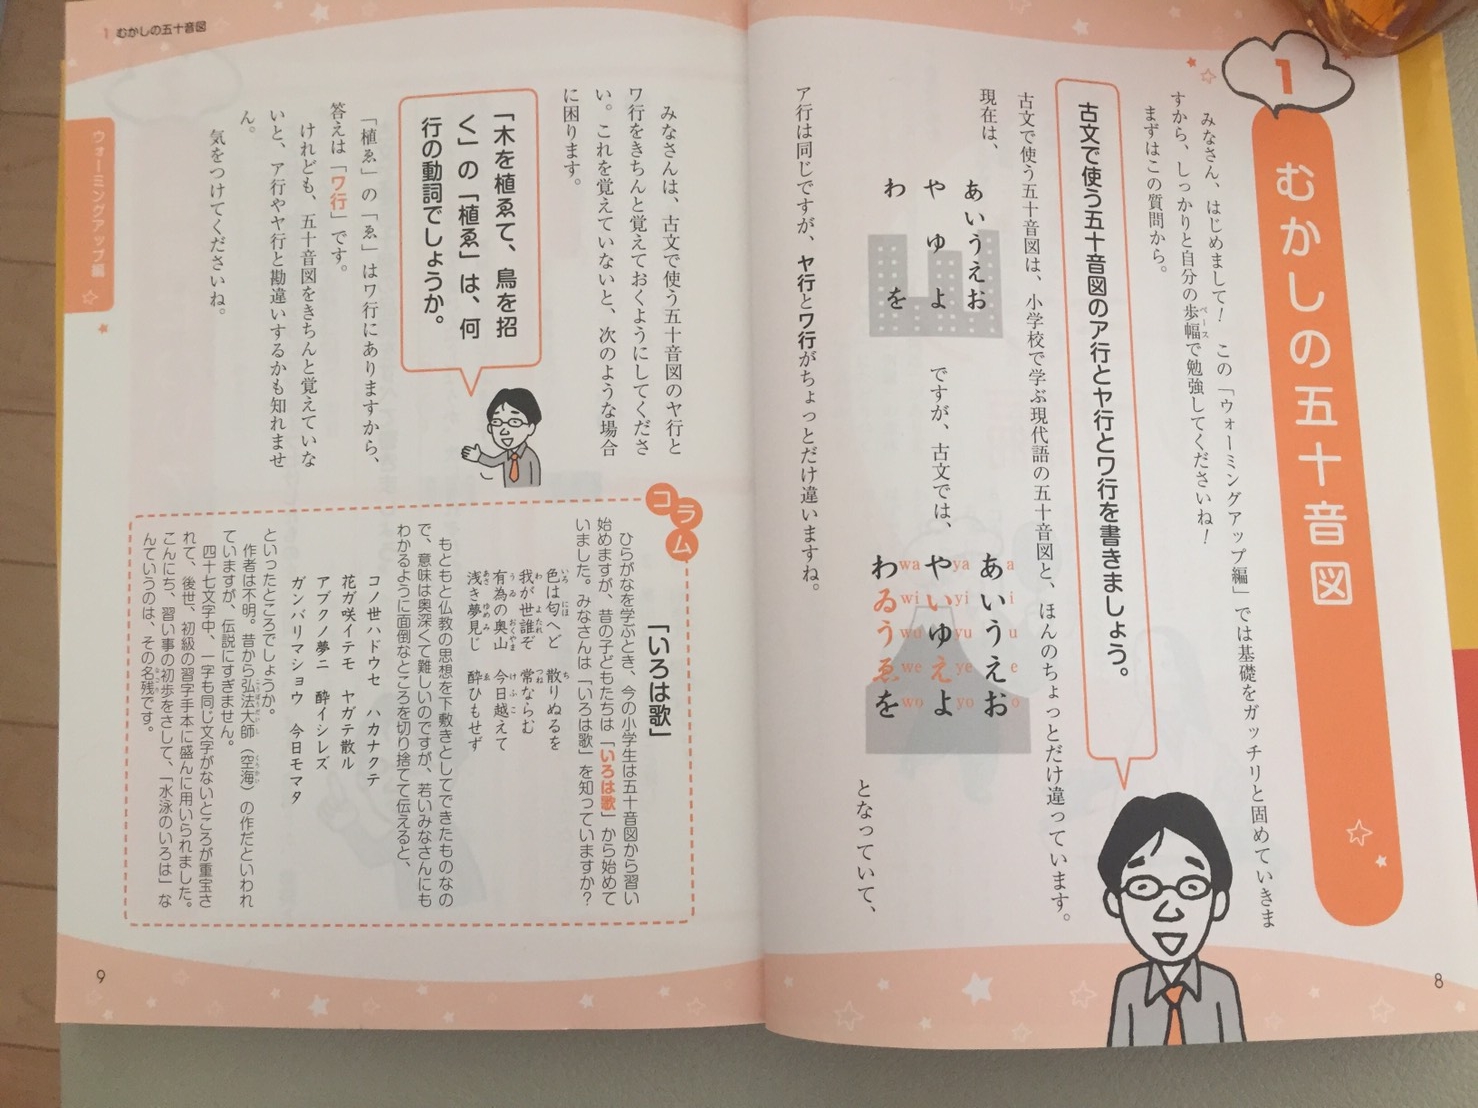 1
むかしの五十音図
みなさん、はじめまして！　この「ウォーミングアップ編」では基礎をガッチリと固めていきま
すから、しっかりと自分の歩幅で勉強してくださいね！
ペース
まずはこの質問から。
古文で使う五十音図のア行とヤ行とワ行を書きましょう。
古文で使う五十音図は、小学校で学ぶ現代語の五十音図と、ほんのちょっとだけ違っています。
現在は、
あいうえお
や　ゆ　よ
わ　　　を
ですが、古文では、
a i u e o
あいうえお
ya yi yu ye yo
やいゆえよ
wa wi wu we wo
わゐうゑを
となっていて、
ア行は同じですが、ヤ行とワ行がちょっとだけ違いますね。
8
1 むかしの五十音図
みなさんは、古文で使う五十音図のヤ行と
ワ行をきちんと覚えておくようにしてくださ
い。これを覚えていないと、次のような場合
に困ります。
「木を植ゑて、鳥を招
く」の「植ゑ」は、何
行の動詞でしょうか。
「植ゑ」の「ゑ」はワ行にありますから、
答えは「ワ行」です。
けれども、五十音図をきちんと覚えていな
いと、ア行やヤ行と勘違いするかも知れませ
ん。
気をつけてくださいね。
ウォーミングアップ編
コラム
「いろは歌」
ひらがなを学ぶとき、今の小学生は五十音図から習い
始めますが、昔の子どもたちは「いろは歌」から始めて
いました。みなさんは「いろは歌」を知っていますか？
色は匂へど　散りぬるを
いろ　にほ　ち
我が世誰ぞ　常ならむ
わ　よたれ　つね
有為の奥山　今日越えて
うゐ　おくやま　けふこ
浅き夢見じ　酔ひもせず
あさ　ゆめみ　ゑ
もともと仏教の思想を下敷きとしてできたものなの
で、意味は奥深くて難しいのですが、若いみなさんにも
わかるように面倒なところを切り捨てて伝えると、
コノ世ハドウセ　ハカナクテ
花ガ咲イテモ　ヤガテ散ル
アブクノ夢ニ　酔イシレズ
ガンバリマショウ　今日モマタ
といったところでしょうか。
作者は不明。昔から弘法大師（空海）の作だといわれ
こうぼうだいし　くうかい
ていますが、伝説にすぎません。
四十七文字中、一字も同じ文字がないところが重宝さ
れて、後世、初級の習字手本に盛んに用いられました。
こんにち、習い事の初歩をさして、「水泳のいろは」な
んていうのは、その名残です。
なごり
9